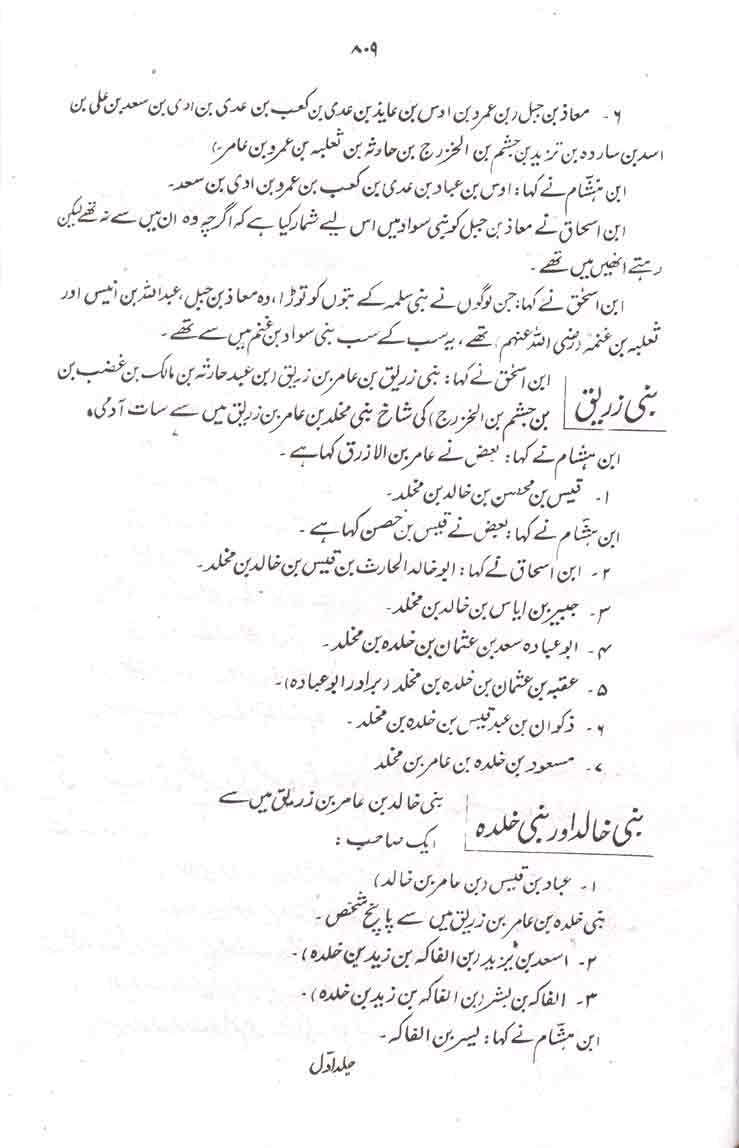 ۸۰۹
۶ - معاذ بن جبل (بن عمرو بن اوس بن عایذ بن عدی بن کعب بن عدی بن ادی بن سعد بن علی بن
اسد بن ساردہ بن تزید بن جشم بن الخزرج بن حارثہ بن ثعلبہ بن عمرو بن عامر)
ابن ہشام نے کہا: اوس بن عباد بن عدی بن کعب بن عمرو بن ادی بن سعد۔
ابن اسحاق نے معاذ بن جبل کو بنی سواد میں اس لیے شمار کیا ہے کہ اگرچہ وہ ان میں سے نہ تھے لیکن
رہتے انھیں میں تھے۔
ابن اسحٰق نے کہا: جن لوگوں نے بنی سلمہ کے بتوں کو توڑا، وہ معاذ بن جبل، عبداللہ بن انیس اور
ثعلبہ بن غنمہ (رضی اللہ عنہم) تھے، یہ سب کے سب بنی سواد بن غنم میں سے تھے۔
بنی زریق
ابن اسحٰق نے کہا: بنی زریق بن عامر بن زریق (بن عبد حارثہ بن مالک بن غضب بن
بن جشم بن الخزرج) کی شاخ بنی مخلد بن عامر بن زریق میں سے سات آدمی،
ابن ہشام نے کہا: بعض نے عامر بن الازرق کہا ہے۔
۱- قیس بن محصن بن خالد بن مخلد۔
ابن ہشام نے کہا: بعض نے قیس بن حصن کہا ہے۔
۲- ابن اسحاق نے کہا: ابو خالد الحارث بن قیس بن خالد بن مخلد۔
۳- جبیر بن ایاس بن خالد بن مخلد۔
۴- ابو عبادہ سعد بن عثمان بن خلدہ بن مخلد۔
۵- عقبہ بن عثمان بن خلدہ بن مخلد (برادر ابو عبادہ)۔
۶- ذکوان بن عبد قیس بن خلدہ بن مخلد۔
۷- مسعود بن خلدہ بن عامر بن مخلد
بنی خالد اور بنی خلدہ
بنی خالد بن عامر بن زریق میں سے
ایک صاحب:
۱- عباد بن قیس (بن عامر بن خالد)
بنی خلدہ بن عامر بن زریق میں سے پانچ شخص۔
۲- اسعد بن یزید (بن الفاکہ بن زید بن خلدہ)۔
۳- الفاکہ بن بشر (بن الفاکہ بن زید بن خلدہ)۔
ابن ہشام نے کہا: بسر بن الفاکہ۔
جلد اوّل